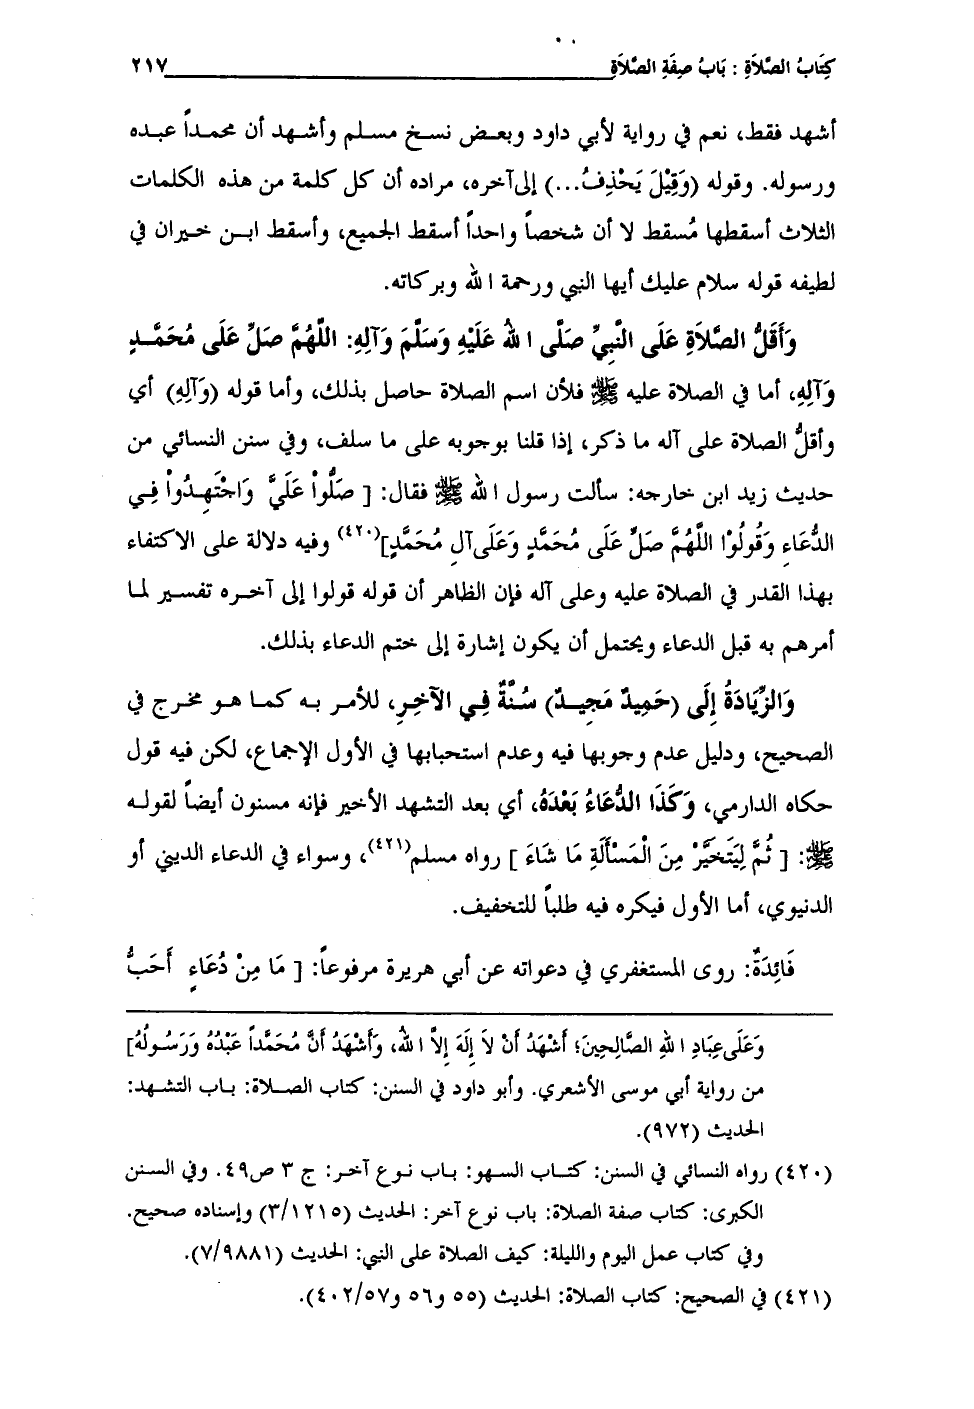 كِتَابُ الصَّلَاةِ : بَابُ صِفَةِ الصَّلَاةِ ٢١٧
أشهد فقط، نعم في رواية لأبي داود وبعض نسخ مسلم وأشهد أن محمداً عبده
ورسوله. وقوله (وَقِيْلَ يَحْذِفُ...) إلى آخره، مراده أن كل كلمة من هذه الكلمات
الثلاث أسقطها مُسقط لا أن شخصاً واحداً أسقط الجميع، وأسقط ابن خيران في
لطيفه قوله سلام عليك أيها النبي ورحمة الله وبركاته.
وَأَقَلُّ الصَّلَاةِ عَلَى النَّبِيِّ صَلَّى اللهُ عَلَيْهِ وَسَلَّمَ وَآلِهِ: اللَّهُمَّ صَلِّ عَلَى مُحَمَّدٍ
وَآلِهِ، أما في الصلاة عليه ﷺ فلأن اسم الصلاة حاصل بذلك، وأما قوله (وَآلِهِ) أي
وأقلُّ الصلاة على آله ما ذكر، إذا قلنا بوجوبه على ما سلف، وفي سنن النسائي من
حديث زيد ابن خارجه: سألت رسول الله ﷺ فقال: [ صَلُّواْ عَلَيَّ وَاجْتَهِدُواْ فِي
الدُّعَاءِ وَقُولُوْا اللَّهُمَّ صَلِّ عَلَى مُحَمَّدٍ وَعَلَى آلِ مُحَمَّدٍ](٤٢٠) وفيه دلالة على الاكتفاء
بهذا القدر في الصلاة عليه وعلى آله فإن الظاهر أن قوله قولوا إلى آخره تفسير لما
أمرهم به قبل الدعاء ويحتمل أن يكون إشارة إلى ختم الدعاء بذلك.
وَالزِّيَادَةُ إِلَى (حَمِيدٌ مَجِيدٌ) سُنَّةٌ فِي الآخِرِ، للأمر به كما هو مخرج في
الصحيح، ودليل عدم وجوبها فيه وعدم استحبابها في الأول الإجماع، لكن فيه قول
حكاه الدارمي، وَكَذَا الدُّعَاءُ بَعْدَهُ، أي بعد التشهد الأخير فإنه مسنون أيضاً لقوله
ﷺ: [ ثُمَّ لِيَتَخَيَّرْ مِنَ الْمَسْأَلَةِ مَا شَاءَ ] رواه مسلم(٤٢١)، وسواء في الدعاء الديني أو
الدنيوي، أما الأول فيكره فيه طلباً للتخفيف.
فَائِدَةٌ: روى المستغفري في دعواته عن أبي هريرة مرفوعاً: [ مَا مِنْ دُعَاءٍ أَحَبُّ
وَعَلَى عِبَادِ اللهِ الصَّالِحِينَ؛ أَشْهَدُ أَنْ لَا إِلَهَ إِلاَّ اللهُ، وَأَشْهَدُ أَنَّ مُحَمَّداً عَبْدُهُ وَرَسُولُهُ]
من رواية أبي موسى الأشعري. وأبو داود في السنن: كتاب الصلاة: باب التشهد:
الحديث (٩٧٢).
(٤٢٠) رواه النسائي في السنن: كتاب السهو: باب نوع آخر: ج ٣ ص٤٩. وفي السنن
الكبرى: كتاب صفة الصلاة: باب نوع آخر: الحديث (٣/١٢١٥) وإسناده صحيح.
وفي كتاب عمل اليوم والليلة: كيف الصلاة على النبي: الحديث (٧/٩٨٨١).
(٤٢١) في الصحيح: كتاب الصلاة: الحديث (٥٥ و٥٦ و٤٠٢/٥٧).